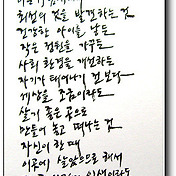 최선의 것을 발견하는 것
건강한 아이를 낳든
작은 정원을 가꾸든
사회 환경을 개선하든
자기가 태어나기 전보다
세상을 조금이라도
살기 좋은 곳으로
만들어 놓고 떠나는 것
자신이 한때
이곳에 살았으므로 해서